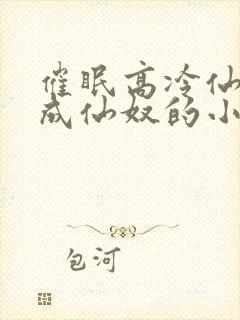 催眠高冷仙
成仙奴的小
包河